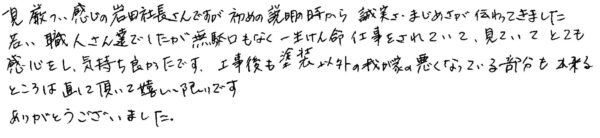 一見 厳つい感じの岩田社長さんですが初めの説明の時から 誠実さ・まじめさが伝わってきました
若い 職人さん達でしたが無駄口もなく一生けん命 仕事をされていて、見ていて とても
感心をし、気持ち良かったです。工事後も塗装以外の我が家の悪くなっている部分も 出来る
ところは直して頂いて嬉しい限りです
ありがとうございました。